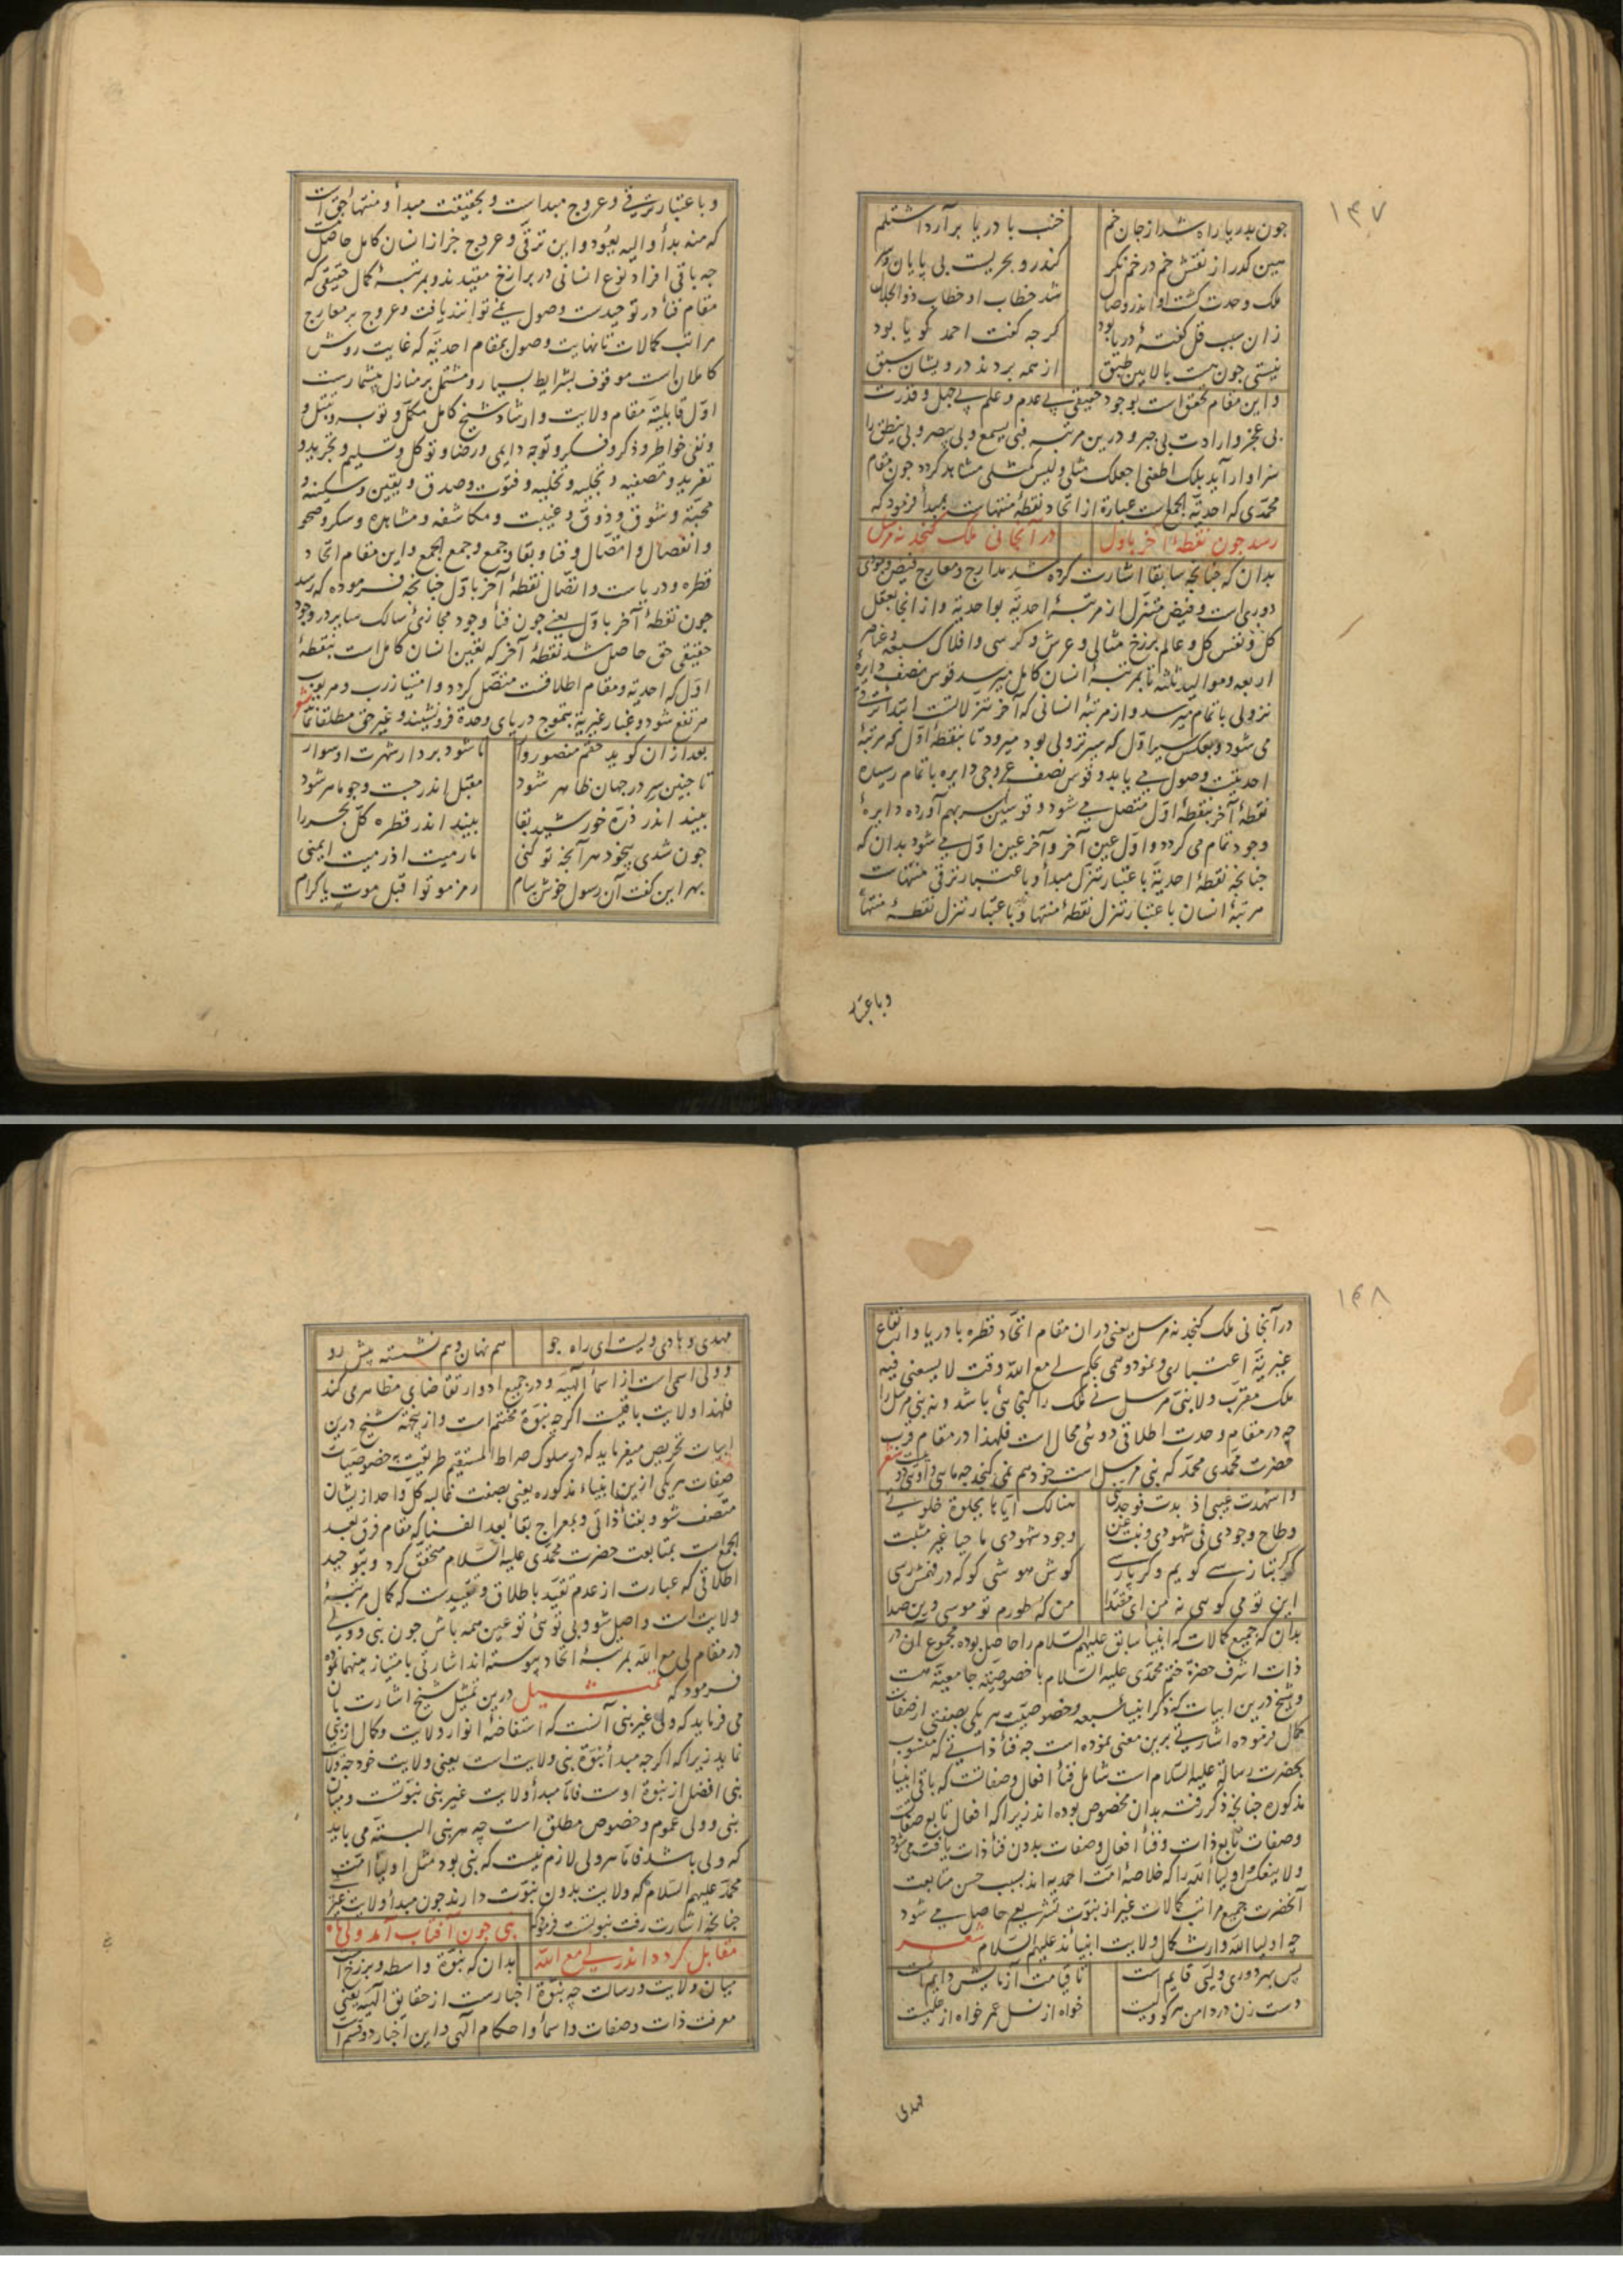 ۱۴۷
چون بدریا راه شد از جان خم
خنب با دریا برآرد اشتلم
هین گذر از نقش خم در خم نکر
کندرو بحریست بی پایان و سر
ملک وحدت کشت او اندر وصال
شد خطاب او خطاب ذوالجلال
زان سبب قل کفتهٔ دریا بود
کرچه کفت احمد کویا بود
نیستی چون هست بالایین طبق
از همه بردند درویشان سبق
واین مقام تحقق است بوجود حقیقی بی عدم و علم بی جهل و قدرت
بی عجز و ارادت بی جبر و درین مرتبه فبی یسمع و بی یبصر و بی ینطق را
سزاوار آید بلک اطعنی اجعلک مثلی و لیس کمثلی مشاهد کردد چون مقام
محمدی که احدیة الجمع است عبارة از اتحاد نقطهٔ منتهاست بمبدأ فرمود که
رسد چون نقطهٔ آخر باول
در آنجا نی ملک کنجد نه مرسل
بدان که چنانچه سابقا اشارت کرده شد مدارج و معارج فیض وجودی
دوری است و فیض متنزل از مرتبهٔ احدیة بواحدیة و از آنجا بعقل
کل و نفس کل و عالم برزخ مثالی و عرش و کرسی و افلاک سبعه و عناصر
اربعه و موالید ثلثه تا بمرتبهٔ انسان کامل میرسد قوس نصف دایرهٔ
نزولی باتمام میرسد و از مرتبهٔ انسانی که آخر تنزلاتست ابتدأ ترقی
می شود و بعکس سیر اول که سیر نزولی بود میرود تا بنقطهٔ اول که مرتبهٔ
احدیتست وصول می یابد و قوس نصف عروجی دایره باتمام رسیده
نقطهٔ آخر بنقطهٔ اول متصل می شود و قوسین سر بهم آورده دایرهٔ
وجود تمام می کردد و اول عین آخر و آخر عین اول می شود بدان که
چنانچه نقطهٔ احدیة باعتبار تنزل مبدأ و باعتبار ترقی منتهاست
مرتبهٔ انسان باعتبار تنزل نقطهٔ منتها و باعتبار تنزل نقطهٔ منتها
و باعتبار
و باعتبار ترقی و عروج مبداست و بحقیقت مبدأ و منتها حق است
که منه بدأ و الیه یعود و این ترقی و عروج جز از انسان کامل حاصل
چه باقی افراد نوع انسانی در برازخ مقیدند و بمرتبهٔ کمال حقیقی که
مقام فنأ در توحیدست وصول نمی توانند یافت و عروج بر معارج
مراتب کمالات تا نهایت وصول بمقام احدیة که غایت روش
کاملان است موقوف بشرایط بسیار و مشتمل بر منازل بیشمارست
اول قابلیة مقام ولایت و ارشاد شیخ کامل مکمل و توبه و تبتل و
و نفی خواطر و ذکر و فکر و توجه دایمی و رضا و توکل و تسلیم و تجرید و
تفرید و تصفیه و تجلیه و تخلیه و فتوت و صدق و یقین و سکینه و
محبة و شوق و ذوق و غیبت و مکاشفه و مشاهده و سکر و صحو
و انفصال و اتصال و فنا و بقا و جمع و جمع الجمع و این مقام اتحاد
قطره و دریاست و اتصال نقطهٔ آخر باول چنانچه فرموده که رسد
چون نقطهٔ آخر باول یعنی چون فنأ وجود مجازئ سالک سایر در وجود
حقیقی حق حاصل شد نقطهٔ آخر که تعین انسان کامل است بنقطهٔ
اول که احدیة و مقام اطلاقست متصل کردد و امتیاز رب و مربوب
مرتفع شود و غبار غیریة بتموج دریای وحدة فرونشیند و غیر حق مطلقا نماند شعر
بعد ازان کوید حقم منصور وار
تا شود بر دار شهرت او سوار
تا چنین سر در جهان ظاهر شود
مقبل اندر جست و جو ماهر شود
بیند اندر ذره خورشید بقا
بیند اندر قطره کل بحر را
چون شدی بیخود هر آنچه تو کنی
ما رمیت اذ رمیت ایمنی
بهر این کفت آن رسول خوش پیام
رمز موتوا قبل موت یا کرام
۱۴۸
در آنجا نی ملک کنجد نه مرسل یعنی در ان مقام اتحاد قطره با دریا و ارتفاع
غیریة اعتباری و نمود وهمی بحکم لی مع الله وقت لا یسعنی فیه
ملک مقرب و لا نبی مرسل نی ملک را کنجائی باشد و نه نبی مرسل را
چه در مقام وحدت اطلاقی دوئی محال است فلهذا در مقام قرب
حضرت محمدی محمد که نبی مرسل است خود هم نمی کنجد چه ماسی و اوئی دو شعر
و اشهدت غیبی اذ بدت فوجدتنی
هنالک ایاها بجلوة خلوتی
وطاح وجودی فی شهودی و بنت عن
وجود شهودی ماحیا غیر مثبت
کر بتازی کویم و کر پارسی
کوش هوشی کو که در فهمش رسی
این تو می کوئی نه من ای مقتدا
من که طورم تو موسی وین صدا
بدان که جمیع کمالات که انبیأ سابق علیهم السلام را حاصل بوده مجموع آن در
ذات اشرف حضرة ختم محمدی علیه السلام با خصوصیة جامعیة هست
و شیخ درین ابیات که ذکر انبیأ سبعه و خصوصیت هر یکی بصفتی از صفات
کمال فرموده اشارتی برین معنی نموده است چه فنأ ذاتی که منسوب
بحضرت رسالة علیه السلام است شامل فنأ افعال و صفاتست که باقی انبیأ
مذکوره چنانچه ذکر رفت بدان مخصوص بوده اند زیرا که افعال تابع صفات
و صفات تابع ذات و فنأ افعال و صفات بدون فنأ ذات یافت می شود
و لا ینعکس و اولیأ الله را که خلاصهٔ امت احمدیه اند بسبب حسن متابعت
آنحضرت جمیع مراتب کمالات غیر از نبوت تشریعی حاصل می شود
چه اولیا الله وارث کمال ولایت انبیااند علیهم السلام شعر
پس بهر دوری ولیی قایم است
تا قیامت آزمایش دایم است
دست زن در دامن هر کو ولیست
خواه از نسل عمر خواه از علیست
مهدی
مهدی و هادی ویست ای راه جو
هم نهان و هم نشسته پیش رو
و ولی اسمی است از اسمأ الهیه و در جمیع ادوار تقاضای مظاهر می کند
فلهذا ولایت باقیست اکرچه نبوة مختتم است و ازینجهة شیخ درین
ابیات تحریص میفرماید که در سلوک صراط المستقیم طریقت بخصوصیات
صفات هر یکی ازین انبیاء مذکوره یعنی بصفت غالبه کل واحد ازیشان
متصف شو و بفنأ ذاتی و بمعراج بقأ بعد الفنا که مقام فرق بعد
الجمع است بمتابعت حضرت محمدی علیه السلام متحقق کرد و بتوحید
اطلاقی که عبارت از عدم تقید باطلاق و تقییدست که کمال مرتبهٔ
ولایت است واصل شو و بی توئی تو عین همه باش چون نبی و ولی
در مقام لی مع الله بمرتبهٔ اتحاد پیوسته اند اشارتی بامتیاز بینهما نموده
فرمود که تمثیل درین تمثیل شیخ اشارت بان
می فرماید که ولی غیر نبی آنست که استفاضهٔ انوار ولایت و کمال از نبی
نماید زیرا که اکرچه مبدأ نبوة نبی ولایت است یعنی ولایت خود چه ولایت
نبی افضل از نبوة اوست فاما مبدأ ولایت غیر نبی نبوتست و میان
نبی و ولی عموم و خصوص مطلق است چه هر نبی البته می باید
که ولی باشد فاما هر ولی لازم نیست که نبی بود مثل اولیأ امت
محمد علیهم السلام که ولایت بدون نبوت دارند چون مبدأ ولایت غیر
چنانچه اشارت رفت نبوتست فرمود که
نبی چون آفتاب آمد ولی ماه
مقابل کردد اندر لی مع الله
بدان که نبوة واسطه و برزخ است
میان ولایت و رسالت چه نبوة اخبارست از حقایق الهیه یعنی
معرفت ذات و صفات و اسمأ و احکام الهی و این اخبار دو قسم است